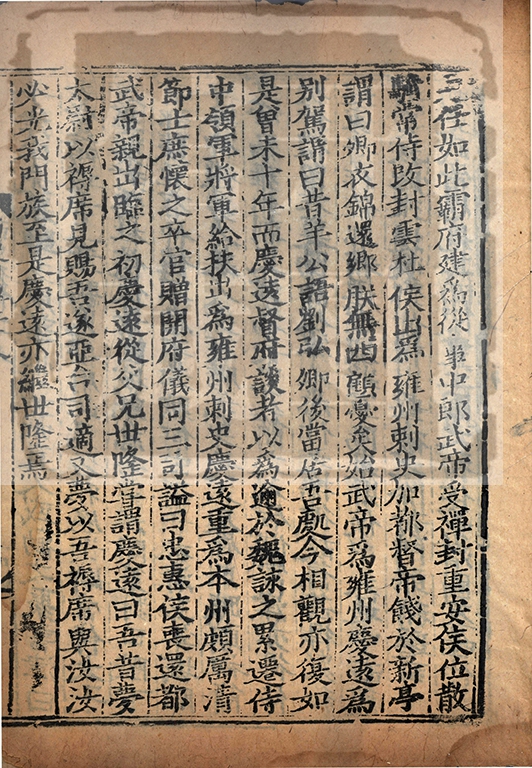 任如此霸府建為從事中郎武帝受禪封重安侯位散
騎常侍改封雲杜侯出為雍州刺史加都督帝餞於新亭
謂曰卿衣錦還鄉朕無西顧憂矣始武帝為雍州慶遠為
別駕謂曰昔羊公語劉弘卿後當居吾處今相觀亦復如
是曾未十年而慶遠督府談者以為逾於魏詠之累遷侍
中領軍將軍給扶出為雍州刺史慶遠重為本州頗厲清
節士庶懷之卒官贈開府儀同三司謚曰忠惠侯喪還都
武帝親出臨之初慶遠從父兄世隆嘗謂慶遠曰吾昔夢
太尉以褥席見賜吾遂亞台司適又夢以吾褥席與汝汝
必光我門族至是慶遠亦繼世隆焉